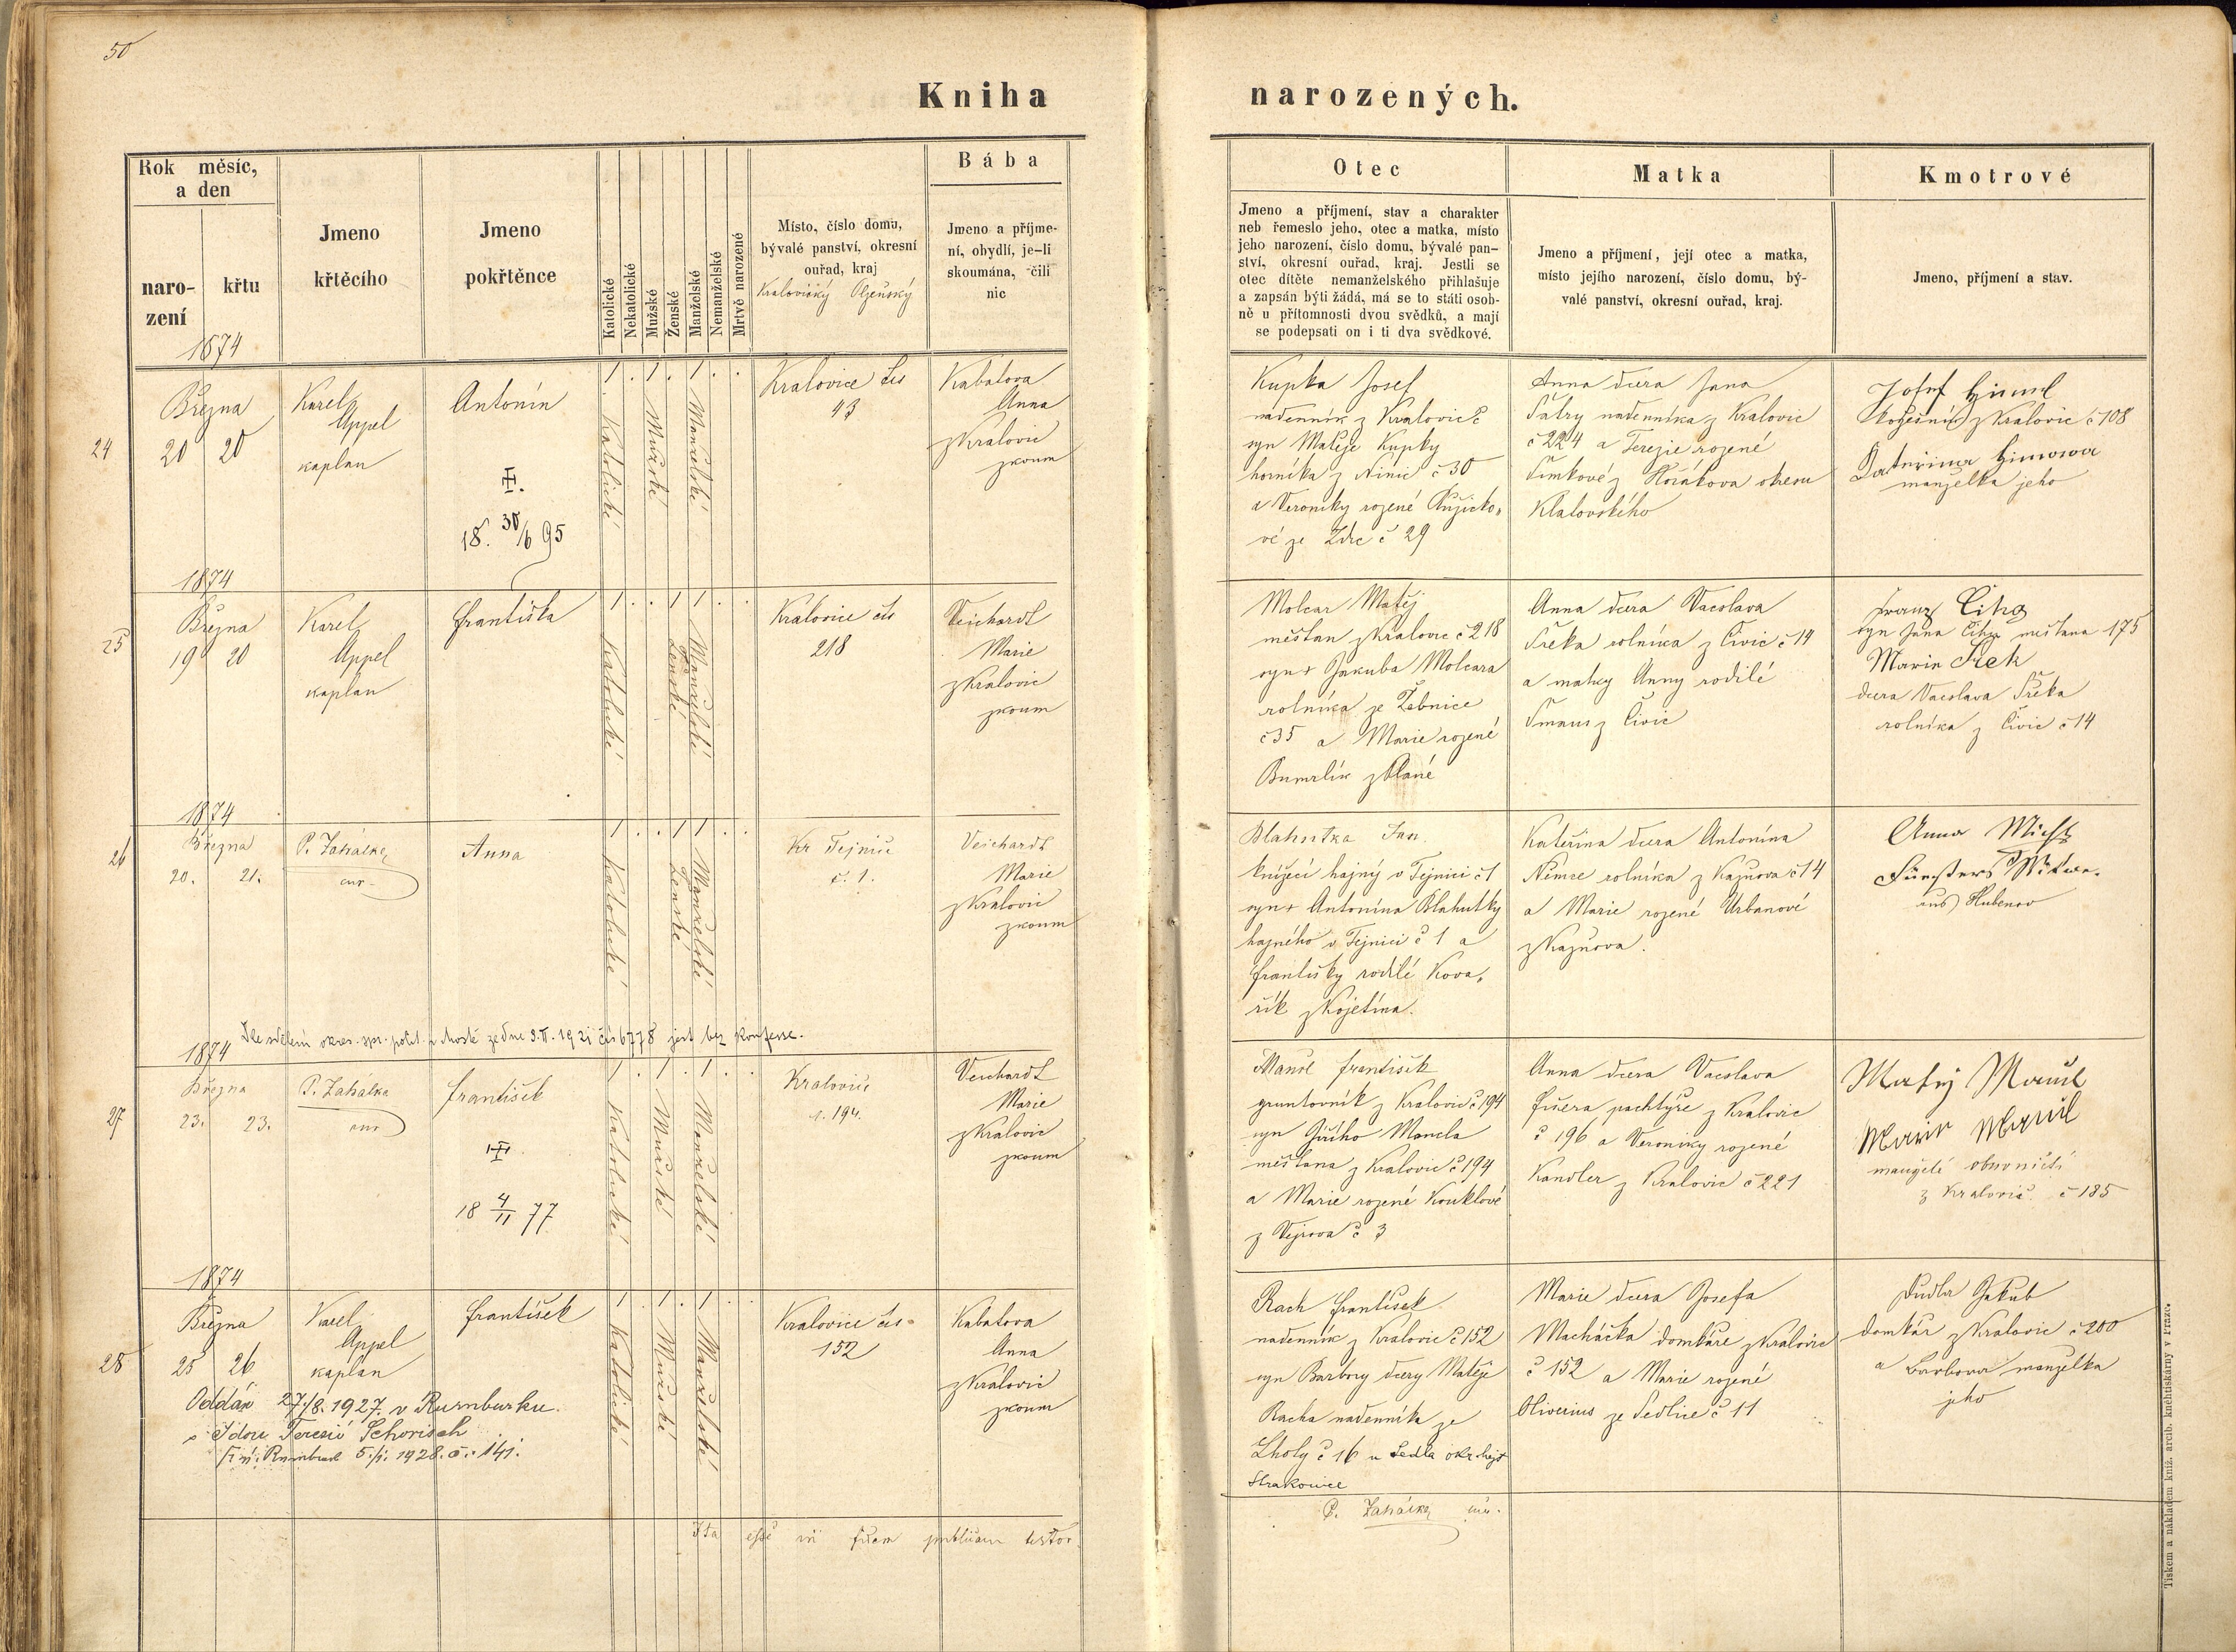 50
Kniha
narozených.
Rok měsíc,
a den
naro-
zení
křtu
1874
Jmeno
křtěcího
Jmeno
pokřtěnce
Katolické
Nekatolické
Mužské
Ženské
Manželské
Nemanželské
Mrtvě narozené
Místo, číslo domu,
bývalé panství, okresní
ouřad, kraj
Kralovický Plzeňský
Bába
Jmeno a příjme-
ní, obydlí, je-li
skoumána, čili
nic
Otec
Jmeno a příjmení, stav a charakter
neb řemeslo jeho, otec a matka, místo
jeho narození, číslo domu, bývalé pan-
ství, okresní ouřad, kraj. Jestli se
otec dítěte nemanželského přihlašuje
a zapsán býti žádá, má se to státi osob-
ně u přítomnosti dvou svědků, a mají
se podepsati on i ti dva svědkové.
Matka
Jmeno a příjmení, její otec a matka,
místo jejího narození, číslo domu, bý-
valé panství, okresní ouřad, kraj.
Kmotrové
Jmeno, příjmení a stav.
24
Března
20 20
Karel
Appel
kaplan
Antonín
18 30/6 95
1 . 1 . 1 . .
Katolické
Mužské
Manželské
Kralovice čis
43
Kabátova
Anna
z Kralovic
zkoum
Kupka Josef
nadenník z Kralovic č
syn Matěje Kupky
horníka z Ninic č 30
a Veroniky rozené Růžičko-
vé ze Zdic č 29
Anna dcera Jana
nadenníka z Kralovic
č 224 a Terezie rozené
Šimkové z okresu
Klatovského
Josef
z Kralovic č 108
Kateřina
manželka jeho
1874
25
Března
19 20
Karel
Appel
kaplan
Františka
1 . . 1 1 . .
Katolické
Ženské
Manželské
Kralovice čis
218
Veichardt
Marie
z Kralovic
zkoum
Molcar Matěj
měšťan z Kralovic č 218
syn + Jakuba Molcara
rolníka ze Žebnice
č 35 a Marie rozené
Bumrlík z Plané
Anna dcera Vacslava
Sřeka rolníka z Čivic č 14
a matky Anny rodilé
z Čivic
Franz Čiha
syn Jana měšťana 175
Marie
dcera Vacslava Sřeka
rolníka z Čivic č 14
1874
26
Března
20. 21.
P. Zahálka
cur.
Anna
1 . . 1 1 . .
Katolické
Ženské
Manželské
Kr Tejnice
č. 1.
Veichardt
Marie
z Kralovic
zkoum
Blahutka Jan
knížecí hajný v Tejnici č 1
syn + Antonína Blahutky
hajného v Tejnici č 1 a
Františky rodilé Kova-
řík z Kojetína.
Kateřina dcera Antonína
Němce rolníka z Kaznova č 14
a Marie rozené Urbanové
z Kaznova.
Anna
Försters Witwe.
aus Hubenov
Dle sdělení okres. spr. polit. v Mostě ze dne 3.II.1921 čís 6778 jest bez konfesse.
1874
27
Března
23. 23.
P. Zahálka
cur
František
18 4/11 77
1 . 1 . 1 . .
Katolické
Mužské
Manželské
Kralovice
č. 194.
Veichardt
Marie
z Kralovic
zkoum
Mancl František
gruntovník z Kralovic č 194
syn Jiřího Mancla
měšťana z Kralovic č 194
a Marie rozené Kouklové
z Vejrova č 3
Anna dcera Vacslava
pachtýře z Kralovic
č 196 a Veroniky rozené
Kandler z Kralovic č 221
Matěj Mancl
Marie Mancl
manželé obuvničtí
z Kralovic č 135
1874
28
Března
25 26
Karel
Appel
kaplan
František
1 . 1 . 1 . .
Katolické
Mužské
Manželské
Kralovice čis
152
Kabatova
Anna
z Kralovic
zkoum
Rach František
nadenník z Kralovic č 152
syn Barbory dcery Matěje
Racha nadenníka ze
Lhoty č 16 u Sedla okr. hejt
Strakonice
Marie dcera Josefa
Macháčka domkáře z Kralovic
č 152 a Marie rozené
Oliverius ze Sedlice č 11
Dudla Jakub
domkář z Kralovic č 200
a Barbora manželka
jeho
Oddán 27./8. 1927. v Rumburku
s Idou Terezií Schorisch
Rumburk 5./1. 1928. č. 141.
Ita esse in fidem publicam testor
P. Zahálka cur.
Tiskem a nákladem kníž. arcib. knihtiskárny v Praze.